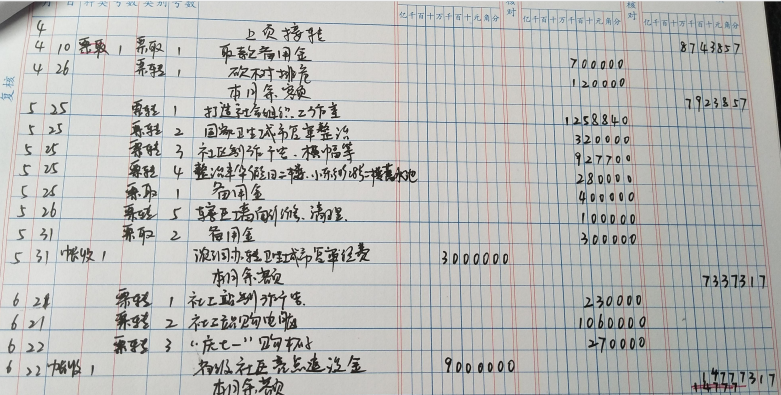 月 日 种类 号数 类别 号数 亿千百十万千百十元角分 核对 亿千百十万千百十元角分 核对 亿千百十万千百十元角分
复核
4 上页接转 8743857
4 10 票取 1 票取 1 取款备用金 700000
4 26 票转 1 砍树排危 120000
本月余额 7923857
5 25 票转 1 打造社会组织工作室 1258840
5 25 票转 2 国家卫生城市复审整治 320000
5 25 票转 3 社区制作广告、横幅等 927700
5 25 票转 4 整治 280000
5 25 票取 1 备用金 400000
5 26 票转 5 辖区墙面 清理 100000
5 31 票取 2 备用金 300000
5 31 帐收 1 办转卫生城市复审经费 3000000
本月余额 7337317
6 21 票转 1 社工站制作广告 230000
6 21 票转 2 社工站购电脑 1060000
6 22 票转 3 “庆七一”购 270000
6 22 帐收 1 社区亮点建设金 9000000
本月余额 14777317
14777